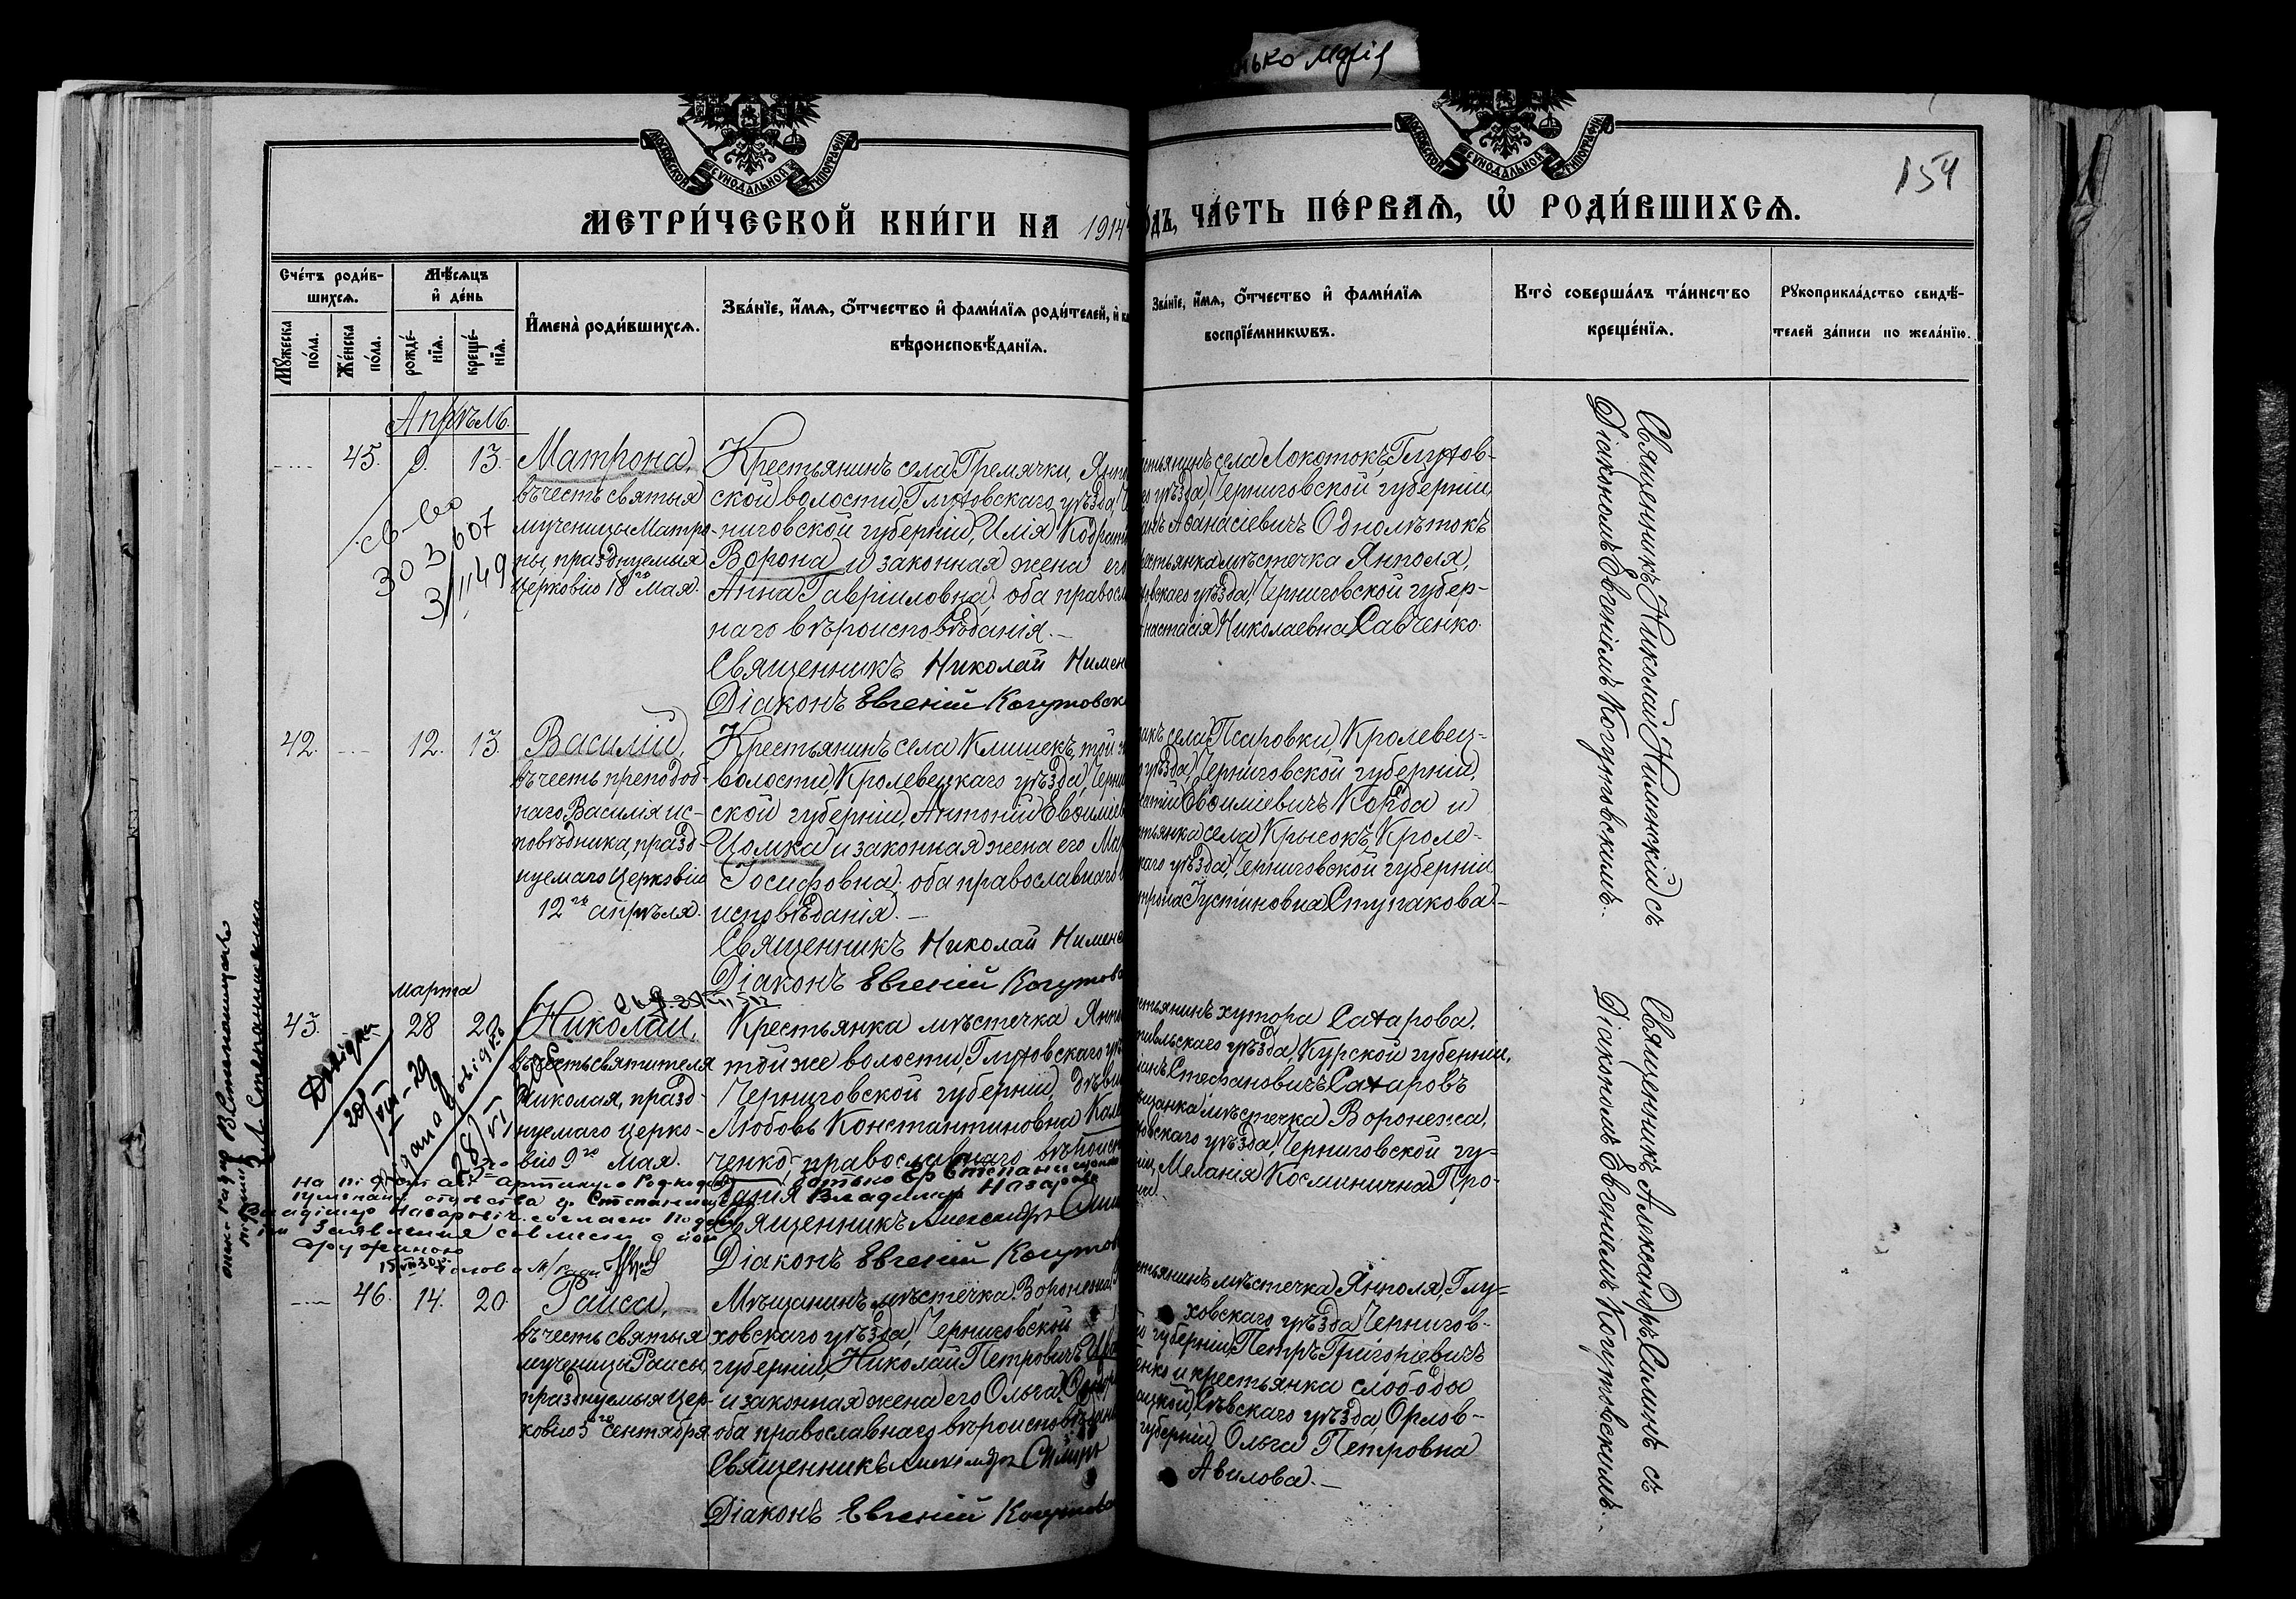 нько Марія
МОСКОВСКОЙ СѴНОДАЛЬНОЙ ТИПОГРАФІИ
МОСКОВСКОЙ СѴНОДАЛЬНОЙ ТИПОГРАФІИ
154
МЕТРИ́ЧЕСКОЙ КНИ́ГИ НА 1914
ОДЪ, ЧА́СТЬ ПЕ́РВАЯ, Ѡ РОДИ́ВШИХСЯ.
Сче́тъ роди́в-
шихся.
Мꙋжеска по́ла.
Же́нска по́ла.
Мѣ́сяцъ
и де́нь
рожде́-
нїя.
креще́-
нїя.
Имена̀ роди́вшихся.
Зва́нїе, и́мя, о́тчество и фами́лїя роди́телей, и
вѣроисповѣ́данїя.
Зва́нїе, и́мя, о́тчество и фами́лїя
воспрїе́мникωвъ.
Кто̀ соверша́лъ та́инство
креще́нїя.
Рꙋкоприкла́дство свидѣ́-
телей за́писи по жела́нїю.
Апрѣль.
45. 9. 13.
Матрона,
въ честь святыя
мученицы Матро-
ны, празднуемыя
Церковію 18го Мая.
св-во
303607
3/II 49
Крестьянинъ села Гремячки, Янп
ской волости, Глуховскаго уѣзда, Ч
ниговской губерніи, Илія Кодрат
Ворона и законная жена его
Анна Гавріиловна; оба правосл
наго вѣроисповѣданія.
Священникъ Николай Нимен
Діаконъ Евгеній Когутовск
стьянинъ села Локотокъ, Глухов-
го уѣзда, Черниговской губерніи,
анъ Аѳанасіевичъ Однолѣтокъ
естьянка мѣстечка Янполя,
овскаго уѣзда, Черниговской губер-
настасія Николаевна Савченко.
Священникъ Николай Нименскій съ
Діакономъ Евгеніемъ Когутовскимъ.
42. 12. 13.
Василій,
въ честь преподоб-
наго Василія ис-
повѣдника, празд-
нуемаго Церковію
12го апрѣля.
Крестьянинъ села Клишекъ, той ж
волости, Кролевецкаго уѣзда, Черни
ской губерніи, Антоній Евѳиміев
Цомка и законная жена его Мар
Іосифовна; оба православнаго в
исповѣданія.
Священникъ Николай Нименс
Діаконъ Евгеній Когутовс
инъ села Псаровки, Кролевец-
о уѣзда, Черниговской губерніи,
Евѳиміевичъ Корда и
стьянка села Крысокъ, Кроле-
каго уѣзда, Черниговской губерніи
трона Іустиновна Ступакова.
марта
43. 28 20
Николай,
въ честь святителя
Николая, празд-
нуемаго Церко-
вію 9го Мая.
Крестьянка мѣстечка Янпо
той же волости, Глуховскаго уѣ
Черниговской губерніи, дѣви
Любовь Константиновна Каль
ченко, православнаго вѣроиспо
данія
Владимир Назаров
Священникъ Александръ Сим
Діаконъ Евгеній Когутов
стьянинъ хутора Сахарова,
тивльскаго уѣзда, Курской губерніи,
Стефановичъ Сахаровъ
ѣщанка мѣстечка Воронежа,
ховскаго уѣзда, Черниговской гу-
ніи, Меланія Косминична Про-
Священникъ Александръ Симпъ съ
Діакономъ Евгеніемъ Когутовскимъ.
46. 14. 20.
Раиса,
въ честь святыя
мученицы Раисы,
празднуемыя Цер-
ковію 5го Сентября
Мѣщанинъ мѣстечка Воронежа, Г
ховскаго уѣзда, Черниговской
губерніи, Николай Петровичъ
и законная жена его Ольга
оба православнаго вѣроисповѣдан
Священникъ Александръ Симпъ
Діаконъ Евгеній Когутовс
стьянинъ мѣстечка Янполя, Глу-
ховскаго уѣзда, Чернигов-
й губерніи, Петръ Григоріевичъ
енко и крестьянка слободы
Сѣвскаго уѣзда, Орлов-
губерніи, Ольга Петровна
Авилова.